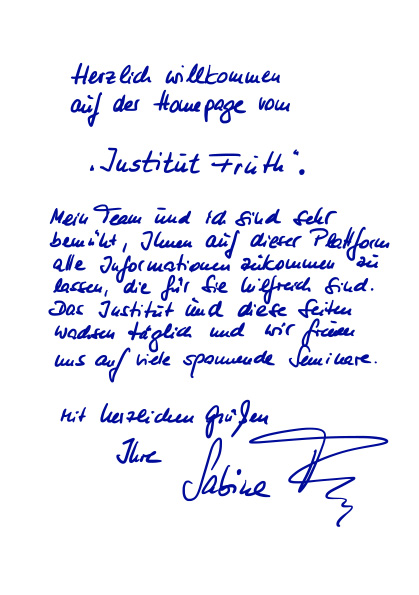 Herzlich willkommen
auf der Homepage vom
"Institut Früth".
Mein Team und ich sind sehr
bemüht, Ihnen auf dieser Plattform
alle Informationen zukommen zu
lassen, die für Sie hilfreich sind.
Das Institut und diese Seiten
wachsen täglich und wir freuen
uns auf viele spannende Seminare.
Mit herzlichen Grüßen
Ihre
Sabine